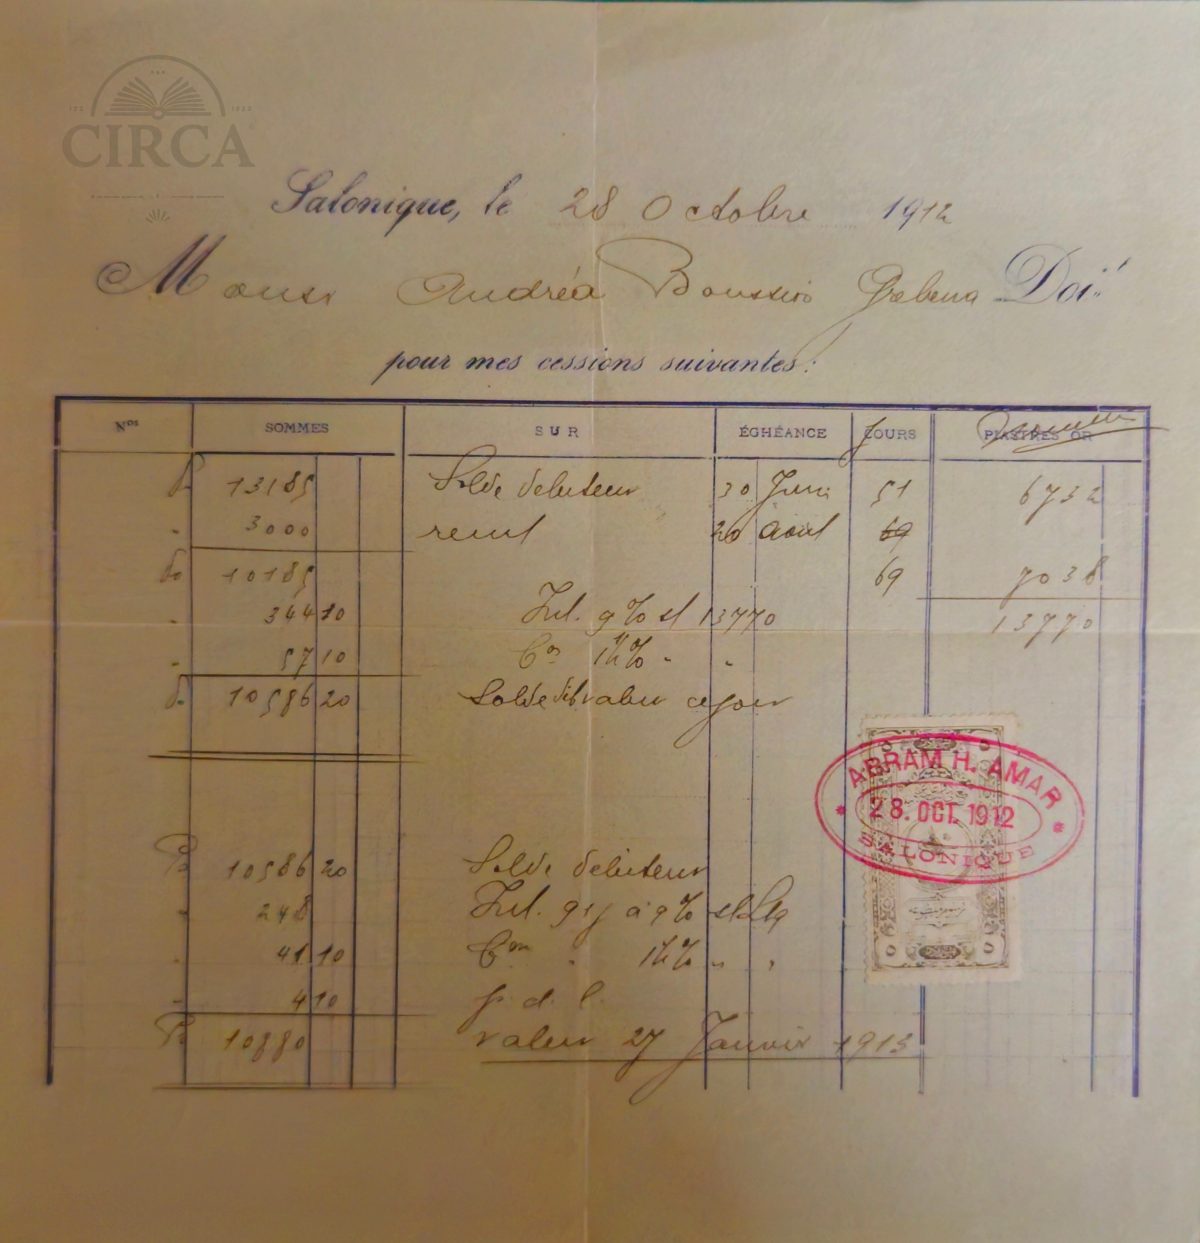 CIRCA
Salonique, le 28 Octobre 1912
Monsr Andréa Boussios Grebena Doit
pour mes cessions suivantes:
Nos SOMMES SUR ÉGHÉANCE COURS PIASTRES OR
13185 Solde debiteur 30 Juin 51 6732
" 3000 remt 20 aout 69
Po 10185 69 7038
" 344 10 Int. 9% s/ 13770 13770
" 57 10 Con 1½% " "
Po 10586 20 Solde deb valeur ce jour
ABRAM H. AMAR
28. OCT. 1912
SALONIQUE
Po 10586 20 Solde debiteur
" 248 Int. 91 j à 9%
" 41 10 Con " 1½% " "
" 4 10 p. d. l.
Po 10880 valeur 27 Janvier 1913